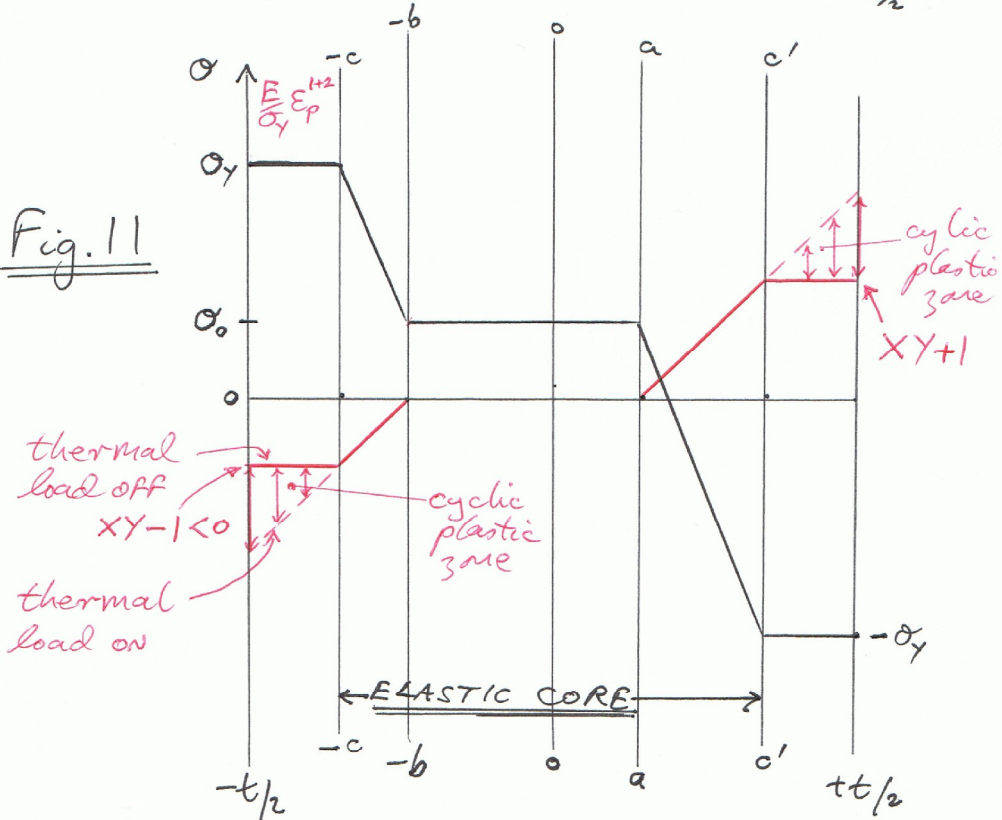 /2
-b
o
-c
a
c'
σ
E/σY εp^1+2
σY
Fig. 11
cylic
plastic
zone
σo
XY+1
o
thermal
load off
XY-1<0
cyclic
plastic
zone
thermal
load on
-σY
ELASTIC CORE
-c
-b
o
a
c'
-t/2
+t/2